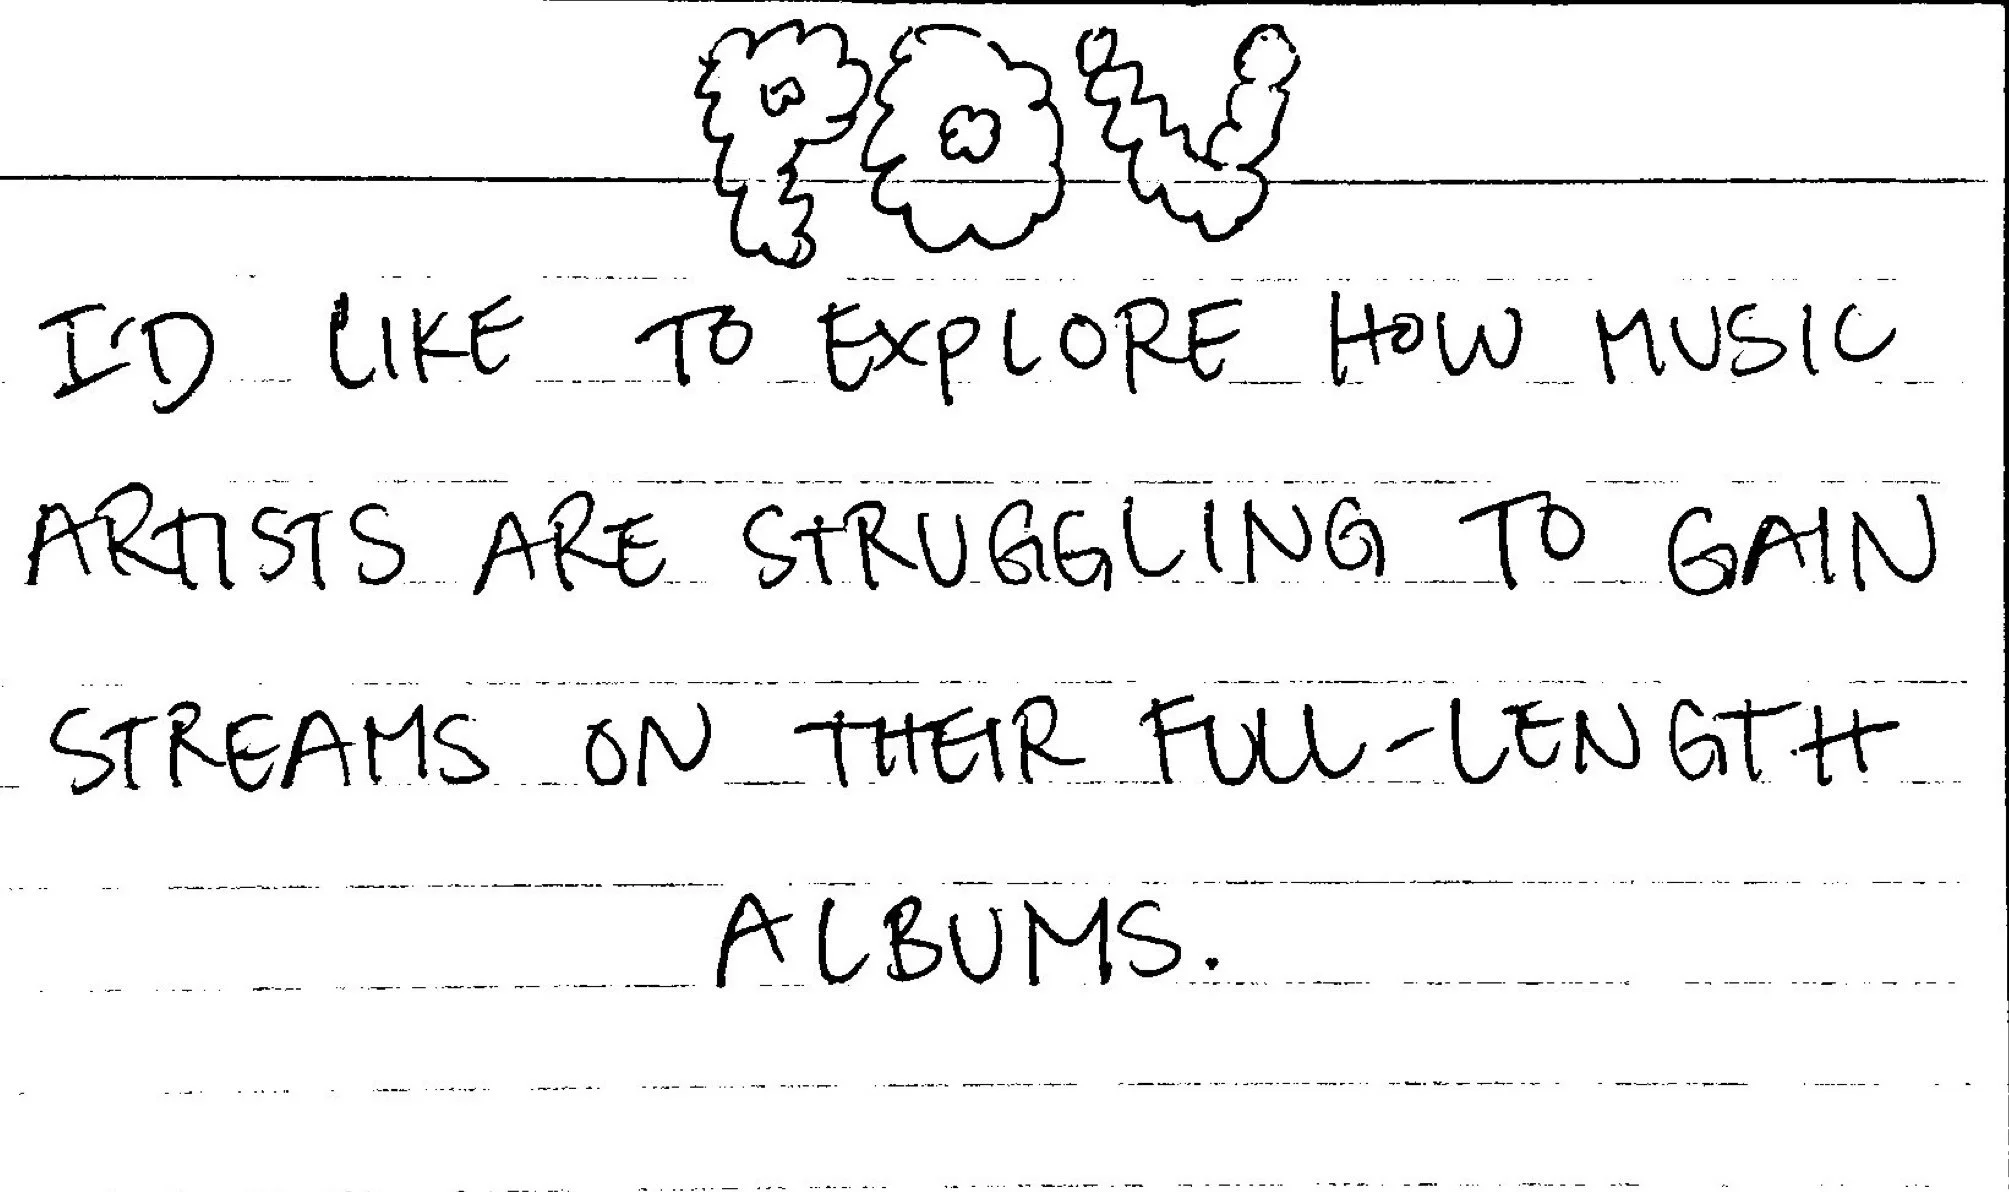 POV
I'D LIKE TO EXPLORE HOW MUSIC
ARTISTS ARE STRUGGLING TO GAIN
STREAMS ON THEIR FULL-LENGTH
ALBUMS.